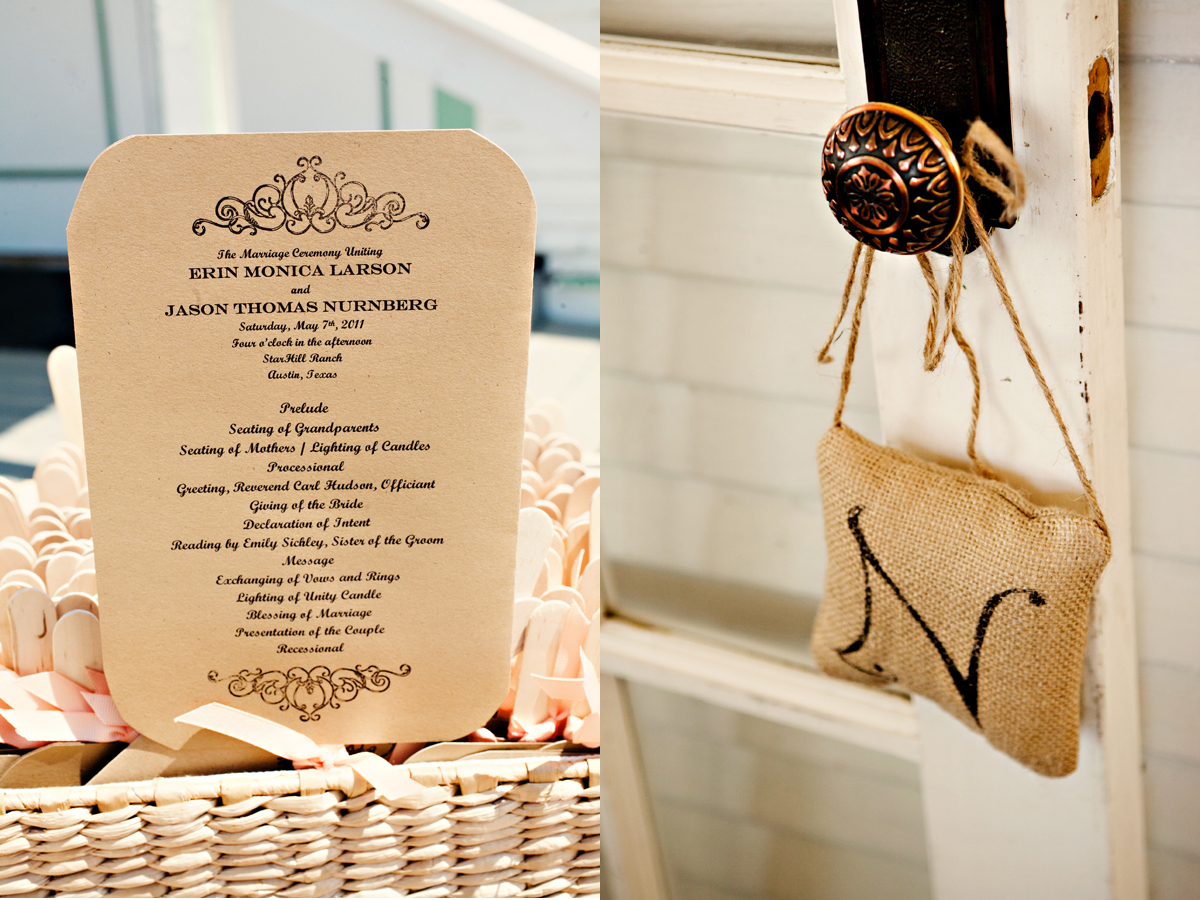 The Marriage Ceremony Uniting
ERIN MONICA LARSON
and
JASON THOMAS NURNBERG
Saturday, May 7th, 2011
Four o'clock in the afternoon
StarHill Ranch
Austin, Texas
Prelude
Seating of Grandparents
Seating of Mothers / Lighting of Candles
Processional
Greeting, Reverend Carl Hudson, Officiant
Giving of the Bride
Declaration of Intent
Reading by Emily Sickley, Sister of the Groom
Message
Exchanging of Vows and Rings
Lighting of Unity Candle
Blessing of Marriage
Presentation of the Couple
Recessional
N